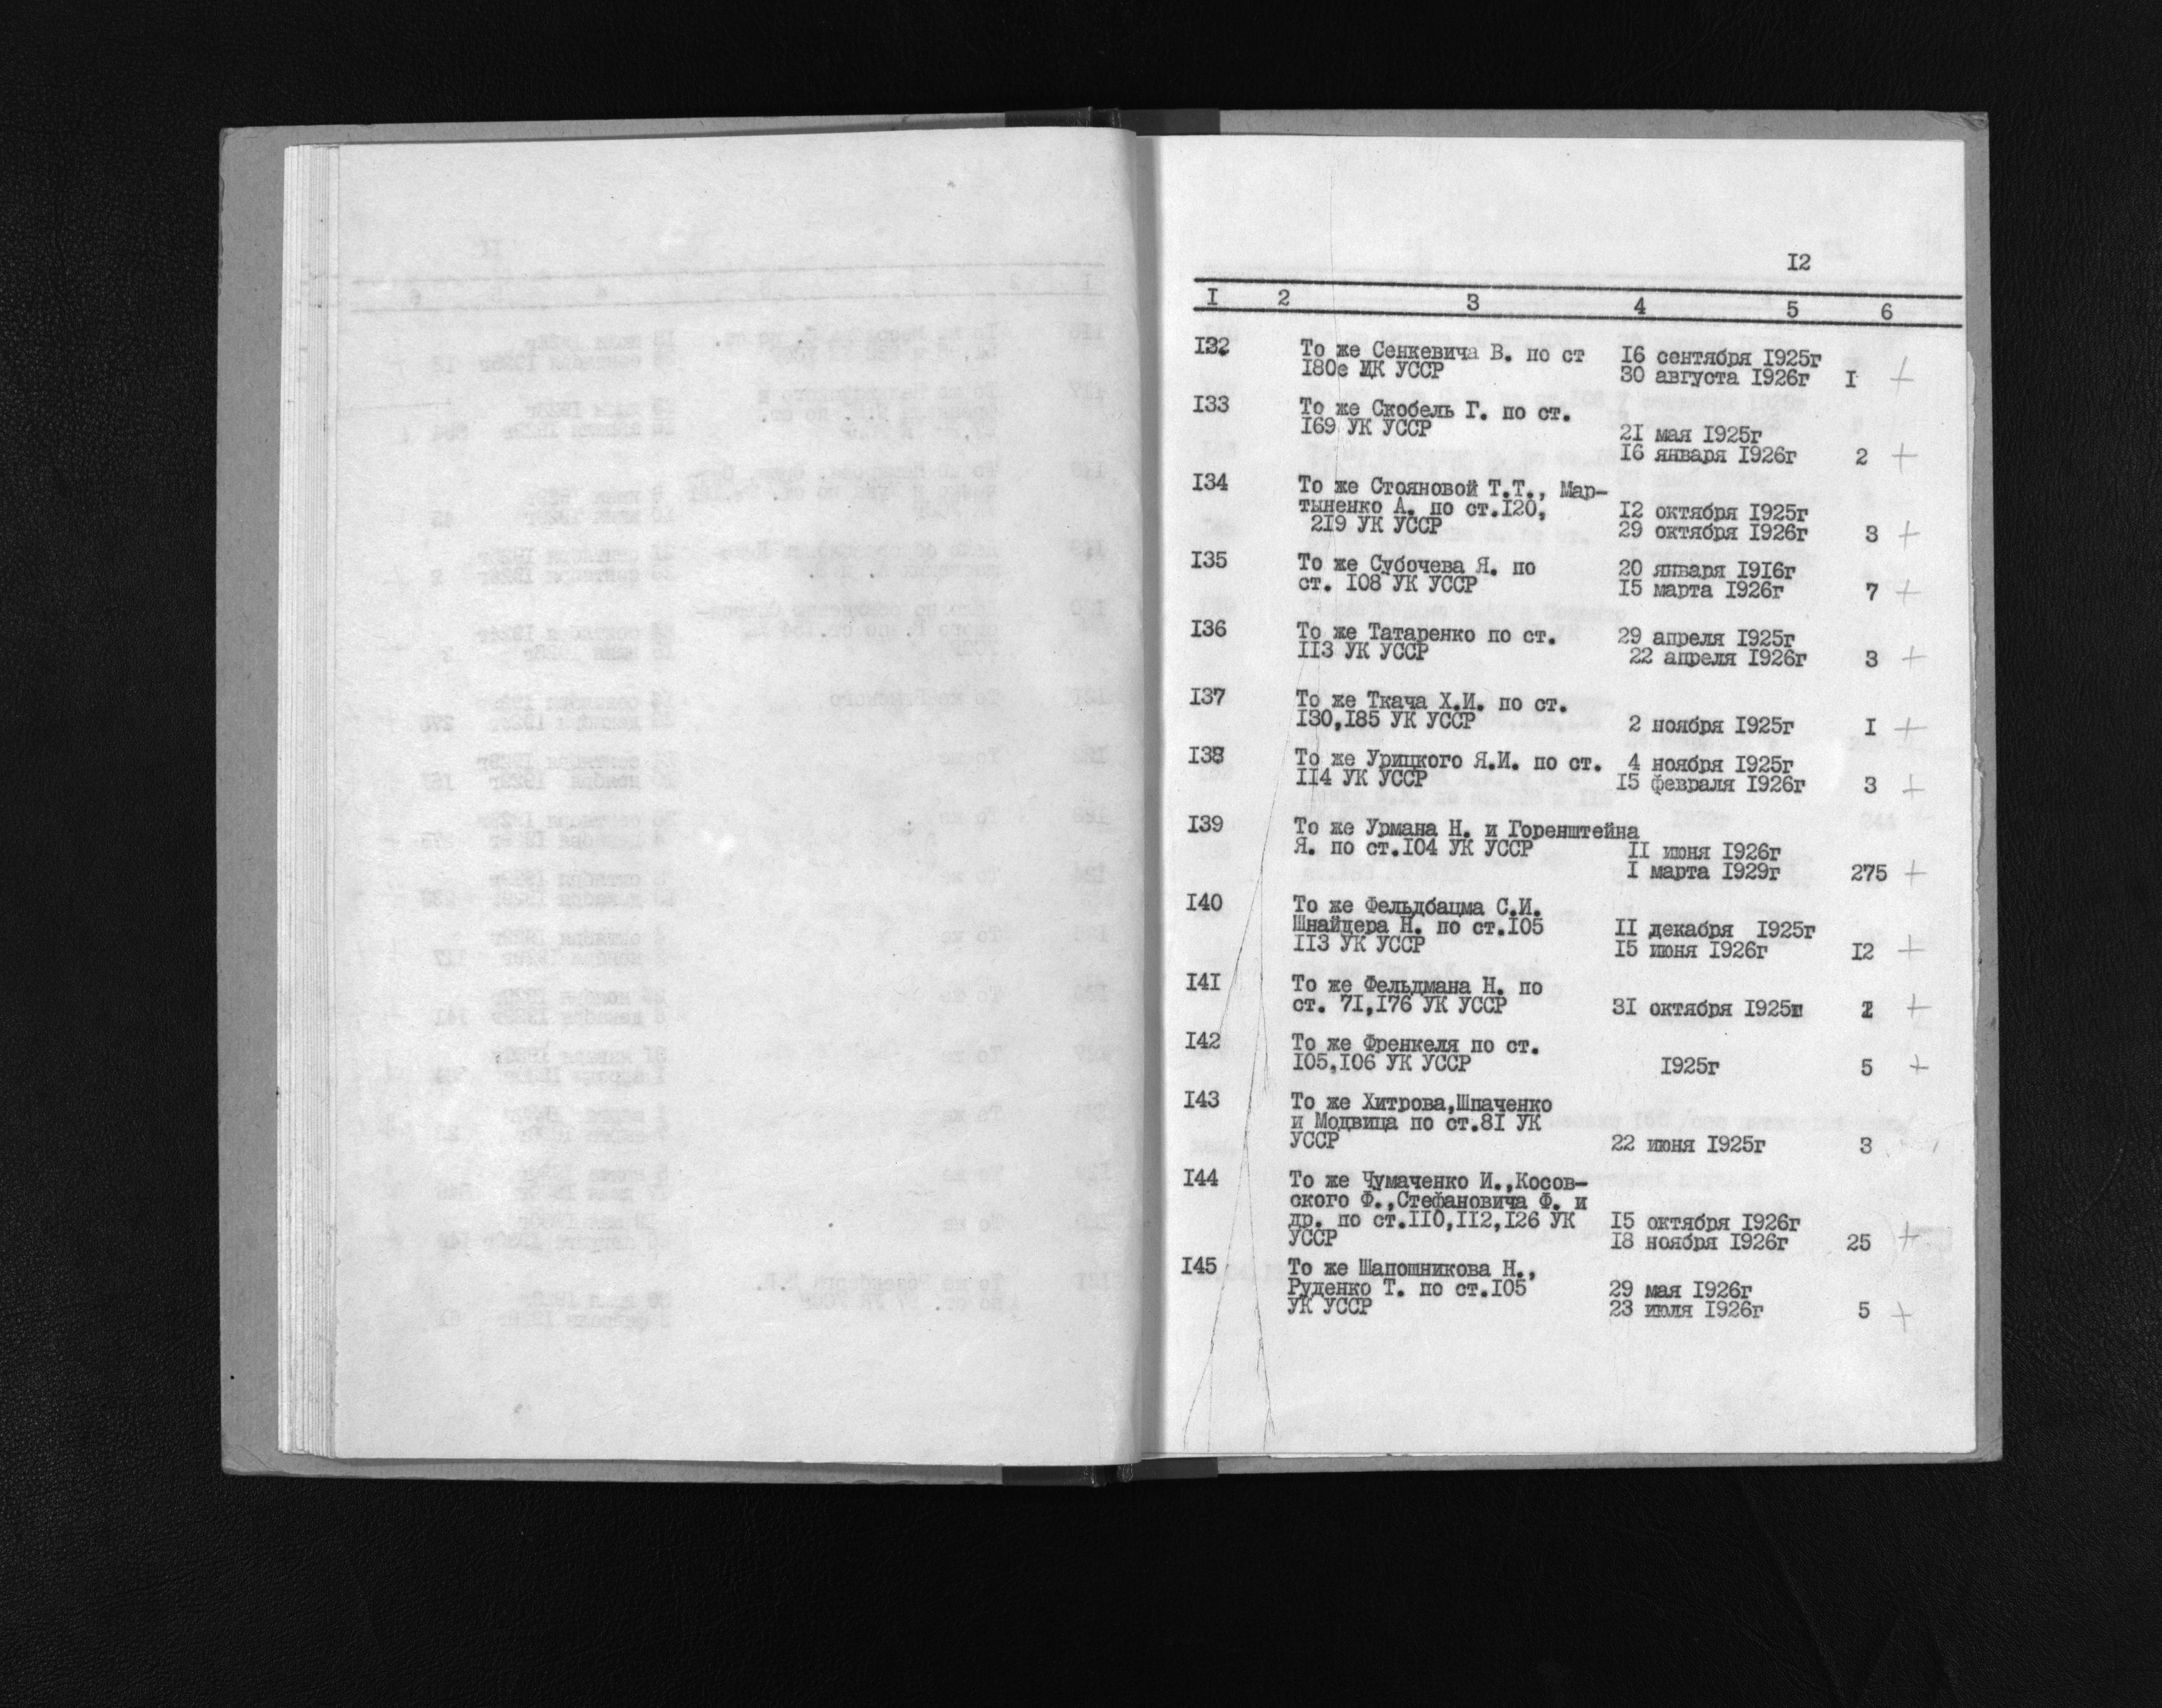 I2
I 2 3 4 5 6
I32 То же Сенкевича В. по ст I6 сентября I925г
I80е УК УССР 30 августа I926г I +
I33 То же Скобель Г. по ст.
I69 УК УССР 2I мая I925г
I6 января I926г 2 +
I34 То же Стояновой Т.Т., Мар-
тыненко А. по ст.I20, I2 октября I925г
2I9 УК УССР 29 октября I926г 3 +
I35 То же Субочева Я. по 20 января I9I6г
ст. I08 УК УССР I5 марта I926г 7 +
I36 То же Татаренко по ст. 29 апреля I925г
II3 УК УССР 22 апреля I926г 3 +
I37 То же Ткача Х.И. по ст.
I30,I85 УК УССР 2 ноября I925г I +
I38 То же Урицкого Я.И. по ст. 4 ноября I925г
II4 УК УССР I5 февраля I926г 3 +
I39 То же Урмана Н. и Горенштейна
Я. по ст.I04 УК УССР II июня I926г
I марта I929г 275 +
I40 То же Фельдбацма С.И.
Шнайдера Н. по ст.I05 II декабря I925г
II3 УК УССР I5 июня I926г I2 +
I4I То же Фельдмана Н. по
ст. 7I,I76 УК УССР 3I октября I925г +
I42 То же Френкеля по ст.
I05,I06 УК УССР I925г 5 +
I43 То же Хитрова,Шпаченко
и Модвица по ст.8I УК
УССР 22 июня I925г 3
I44 То же Чумаченко И.,Косов-
ского Ф.,Стефановича Ф. и
др. по ст.II0,II2,I26 УК I5 октября I926г
УССР I8 ноября I926г 25 +
I45 То же Шапошникова Н.,
Руденко Т. по ст.I05 29 мая I926г
УК УССР 23 июля I926г 5 +